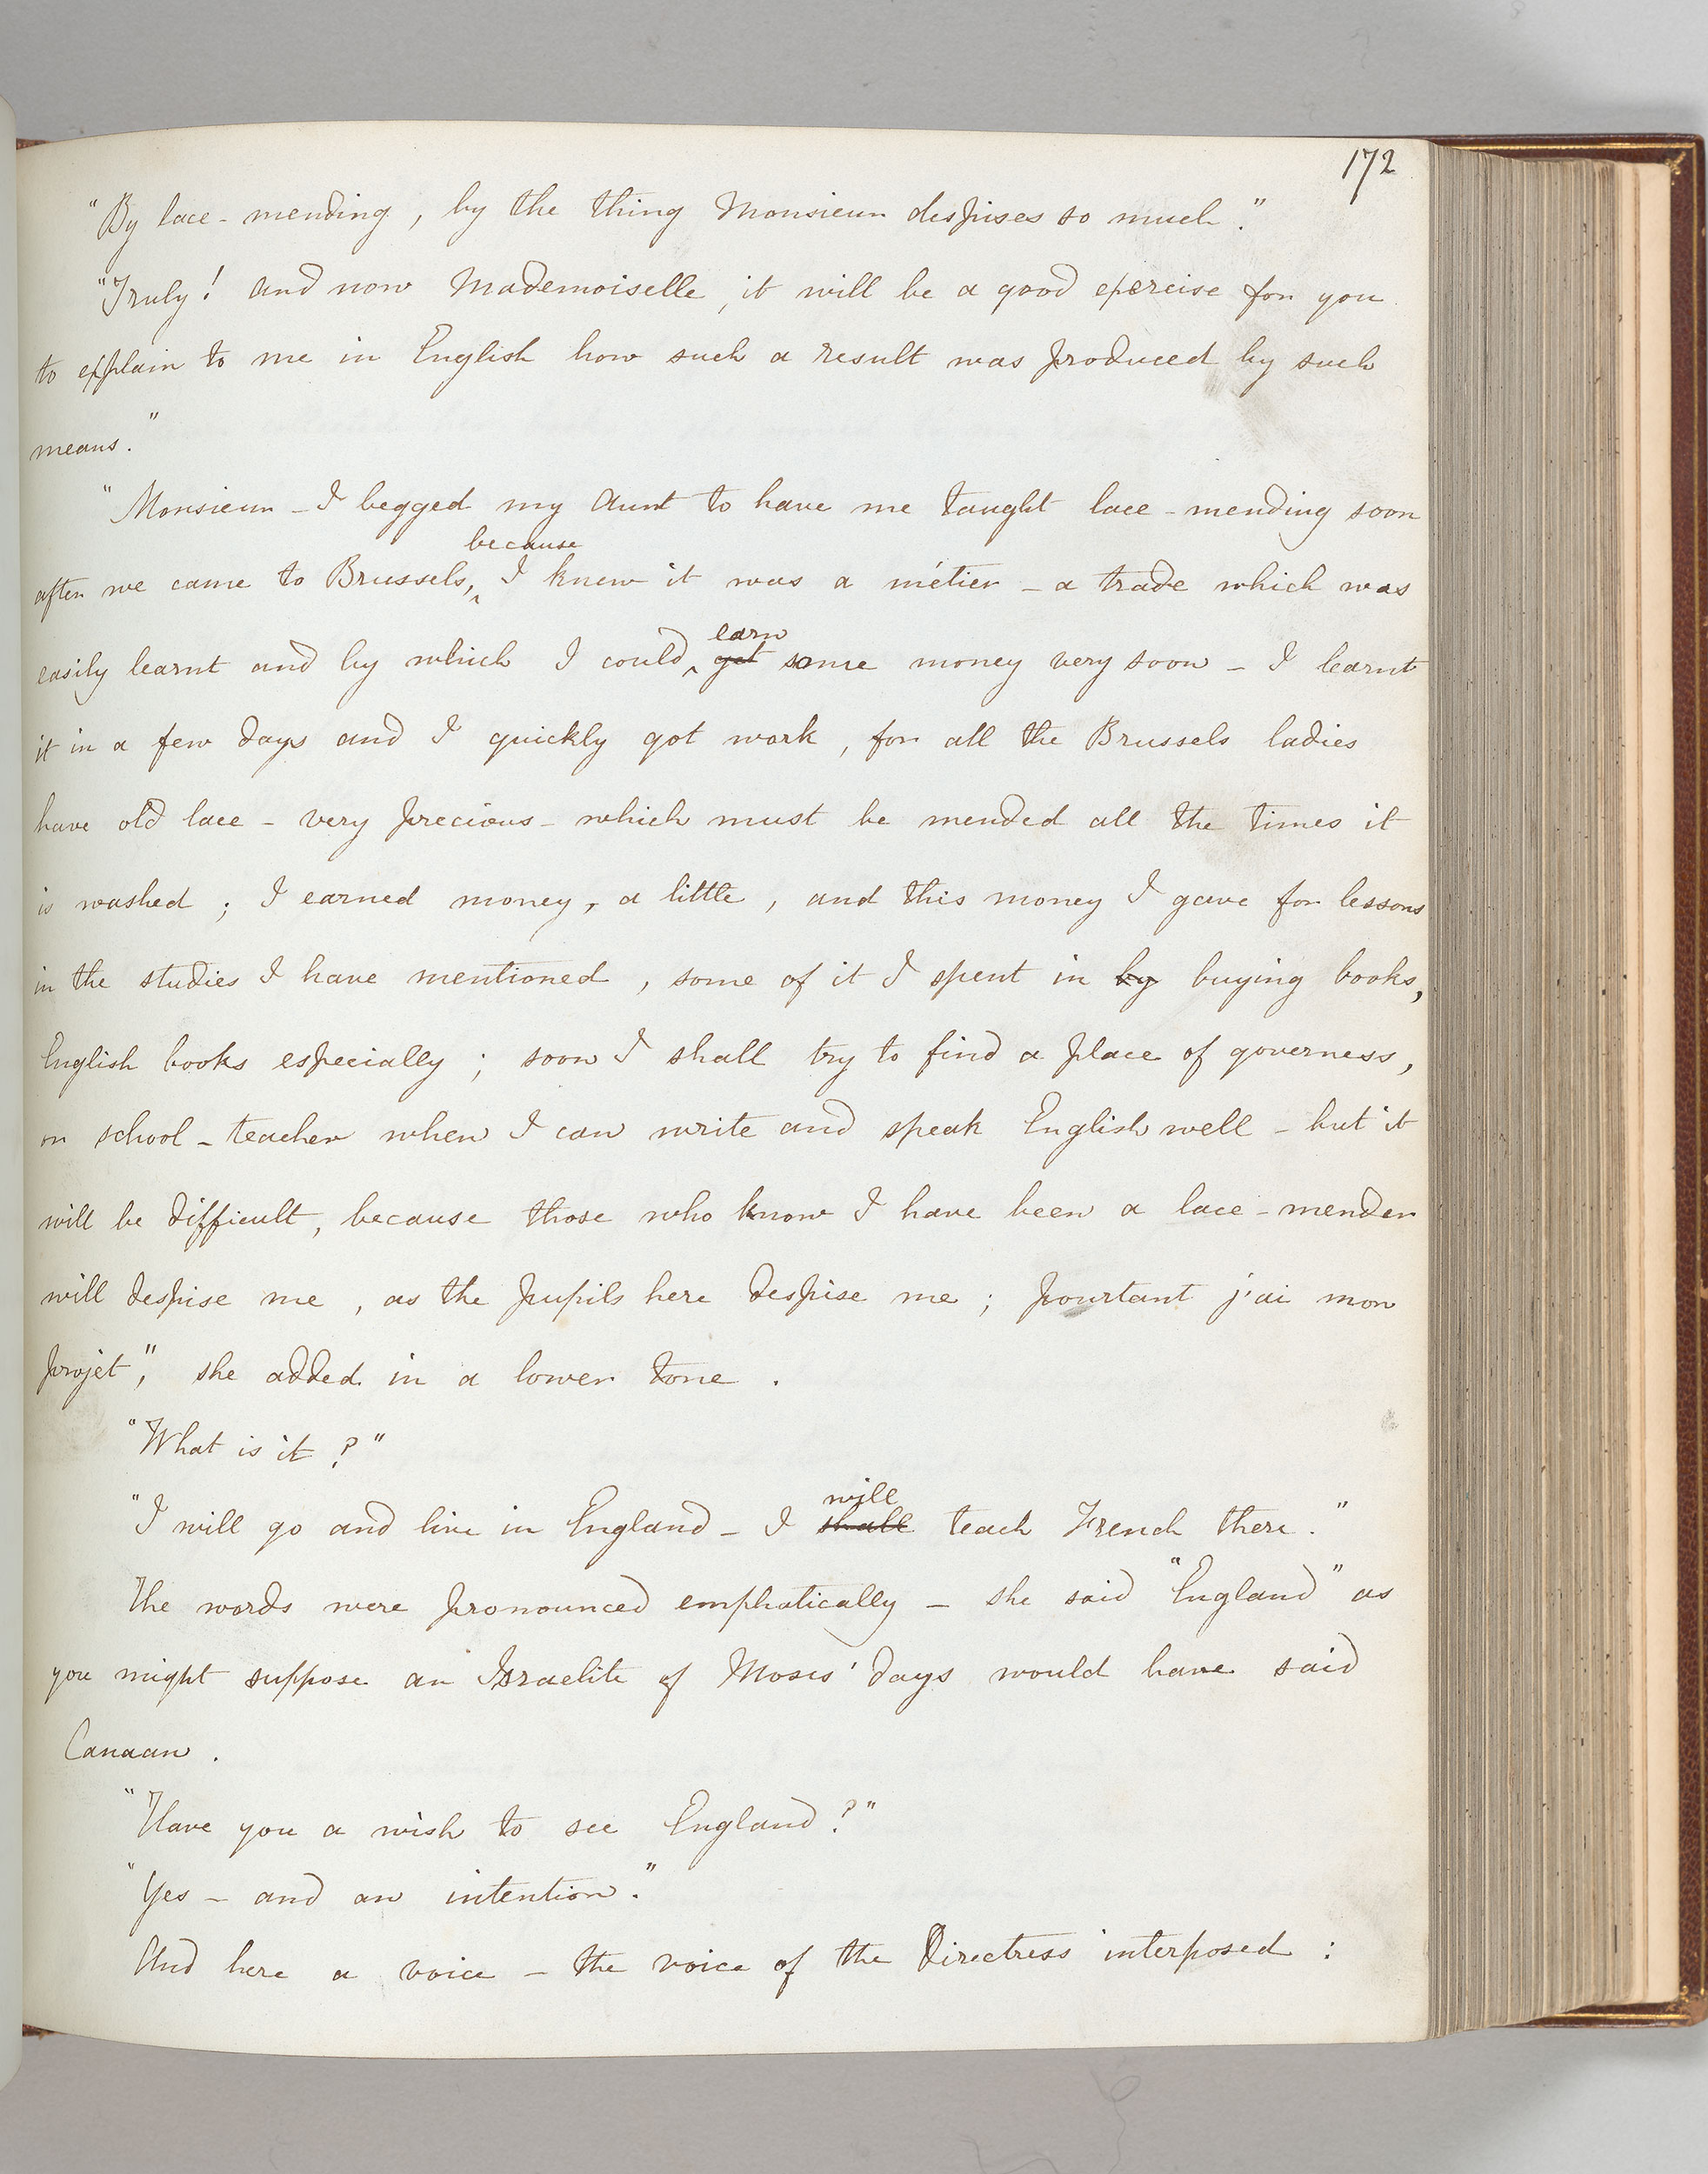 172
"By lace-mending, by the thing Monsieur despises so much."
"Truly! and now Mademoiselle, it will be a good exercise for you
to explain to me in English how such a result was produced by such
means."
"Monsieur - I begged my Aunt to have me taught lace-mending soon
because
after we came to Brussels, I knew it was a métier - a trade which was
earn
easily learnt and by which I could get some money very soon - I learnt
it in a few days and I quickly got work, for all the Brussels ladies
have old lace - very precious - which must be mended all the times it
is washed; I earned money, a little, and this money I gave for lessons
in the studies I have mentioned, some of it I spent in by buying books,
English books especially; soon I shall try to find a place of governess,
or school-teacher when I can write and speak English well - but it
will be difficult, because those who know I have been a lace-mender
will despise me, as the pupils here despise me; pourtant j'ai mon
projet", she added in a lower tone.
"What is it?"
will
"I will go and live in England - I shall teach French there."
The words were pronounced emphatically - she said "England" as
you might suppose an Israelite of Moses' days would have said
Canaan.
"Have you a wish to see England?"
"Yes - and an intention."
And here a voice - the voice of the Directress interposed: